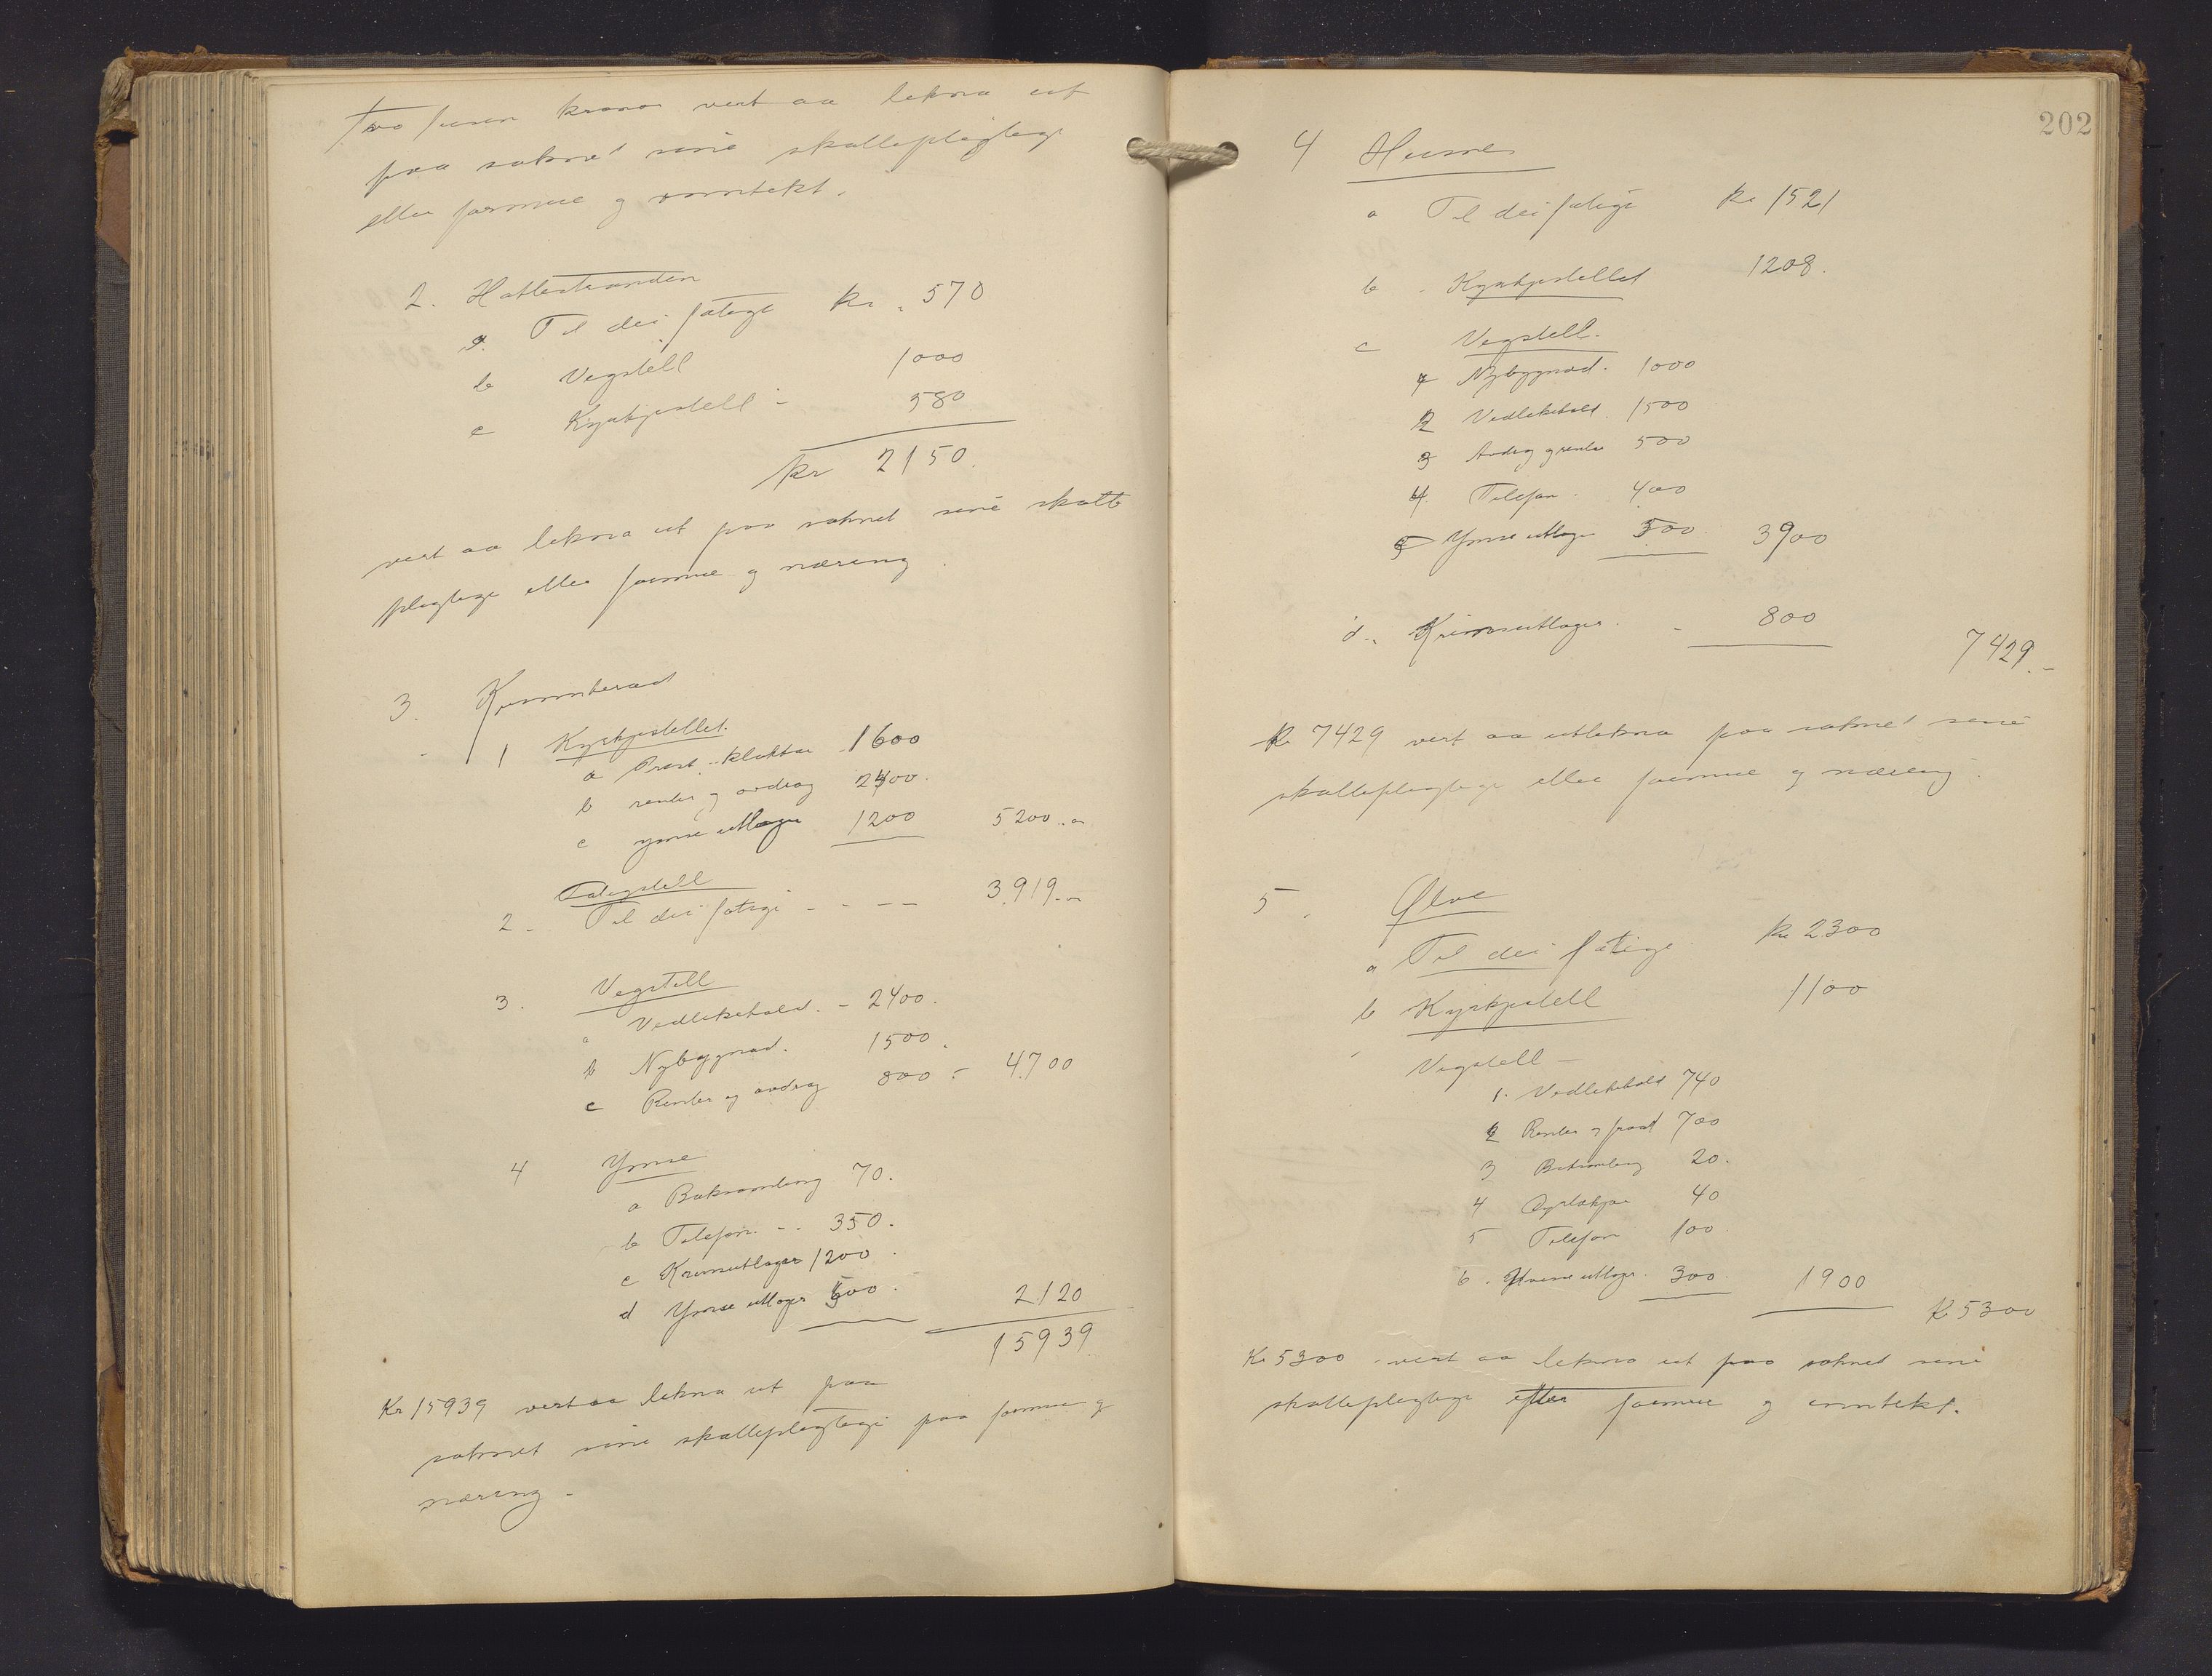 Two susen kronor vert aa lekna ut
paa soknet sine skatteplogtage
etter formue og inntekt.
2. Hatlestranden
a. Til dei fatige kr. 570
b Vegstell 1000
c Kyrkjestell - 580
kr 2150
vert aa lekna ut paa soknet sine skatte
plogtage etter formue og næring.
3. Kvinnherad
1 Kyrkjestellet.
a Prest. klokkar 1600
b renter og avdrag 2400.
c ymse utlogur 1200 5200
Fatigstell
2 - Til dei fatige - - - - 3919
3. Vegstell
a Vedlikehald. - 2400.
b Nybygnad. 1500.
c Renter og avdrag 800 - 4700
4 Ymse
a Boksamling 70.
b Telefon - - 350.
c Krinsutlogur 1200.
d Ymse utlogur 500. 2120
15939
Kr 15939 vert aa lekna ut paa
soknet sine skatteplogtage paa formue og
næring -
202
4 Husnes
a Til dei fatige kr 1521
b . Kyrkjestellet 1208.
c Vegstell.
1 Nybygnad. 1000
2 Vedlikehald. 1500
3 Avdrag og renter 500
4 Telefon. 400
5 Ymse utlogur 500. 3900
d. Krinsutlogur. - 800
7429.-
Kr 7429 vert aa utlekna paa soknet sine
skatteplogtage etter formue og næring.
5. Ølve
a Til dei fatige kr 2300
b Kyrkjestell 1100
Vegstell -
1. Vedlikehald 740
2 Renter og 700
3 Boksamling 20.
4 Dyrlækjar 40
5 Telefon 100.
6. Ymse utlogur. 300. 1900
Kr 5300
Kr 5300 vert aa lekna ut paa soknet sine
skatteplogtage etter formue og inntekt.